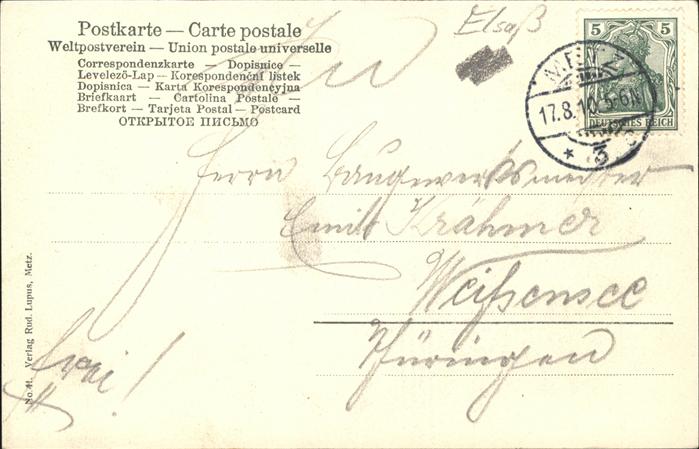 Postkarte — Carte postale
Weltpostverein — Union postale universelle
Correspondenzkarte — Dopisnice —
Levelező-Lap — Korespondenční listek
Dopisnica — Karta Korespondencyjna
Briefkaart — Cartolina Postale —
Brefkort — Tarjeta Postal — Postcard
ОТКРЫТОЕ ПИСЬМО
Elsaß
5 5
DEUTSCHES REICH
17.8.10 5-6N
* 3
An
Herrn Baugewerksmeister
Emil Krähmer
Weißensee
Thüringen
No. 41. Verlag Rud. Lupus, Metz.